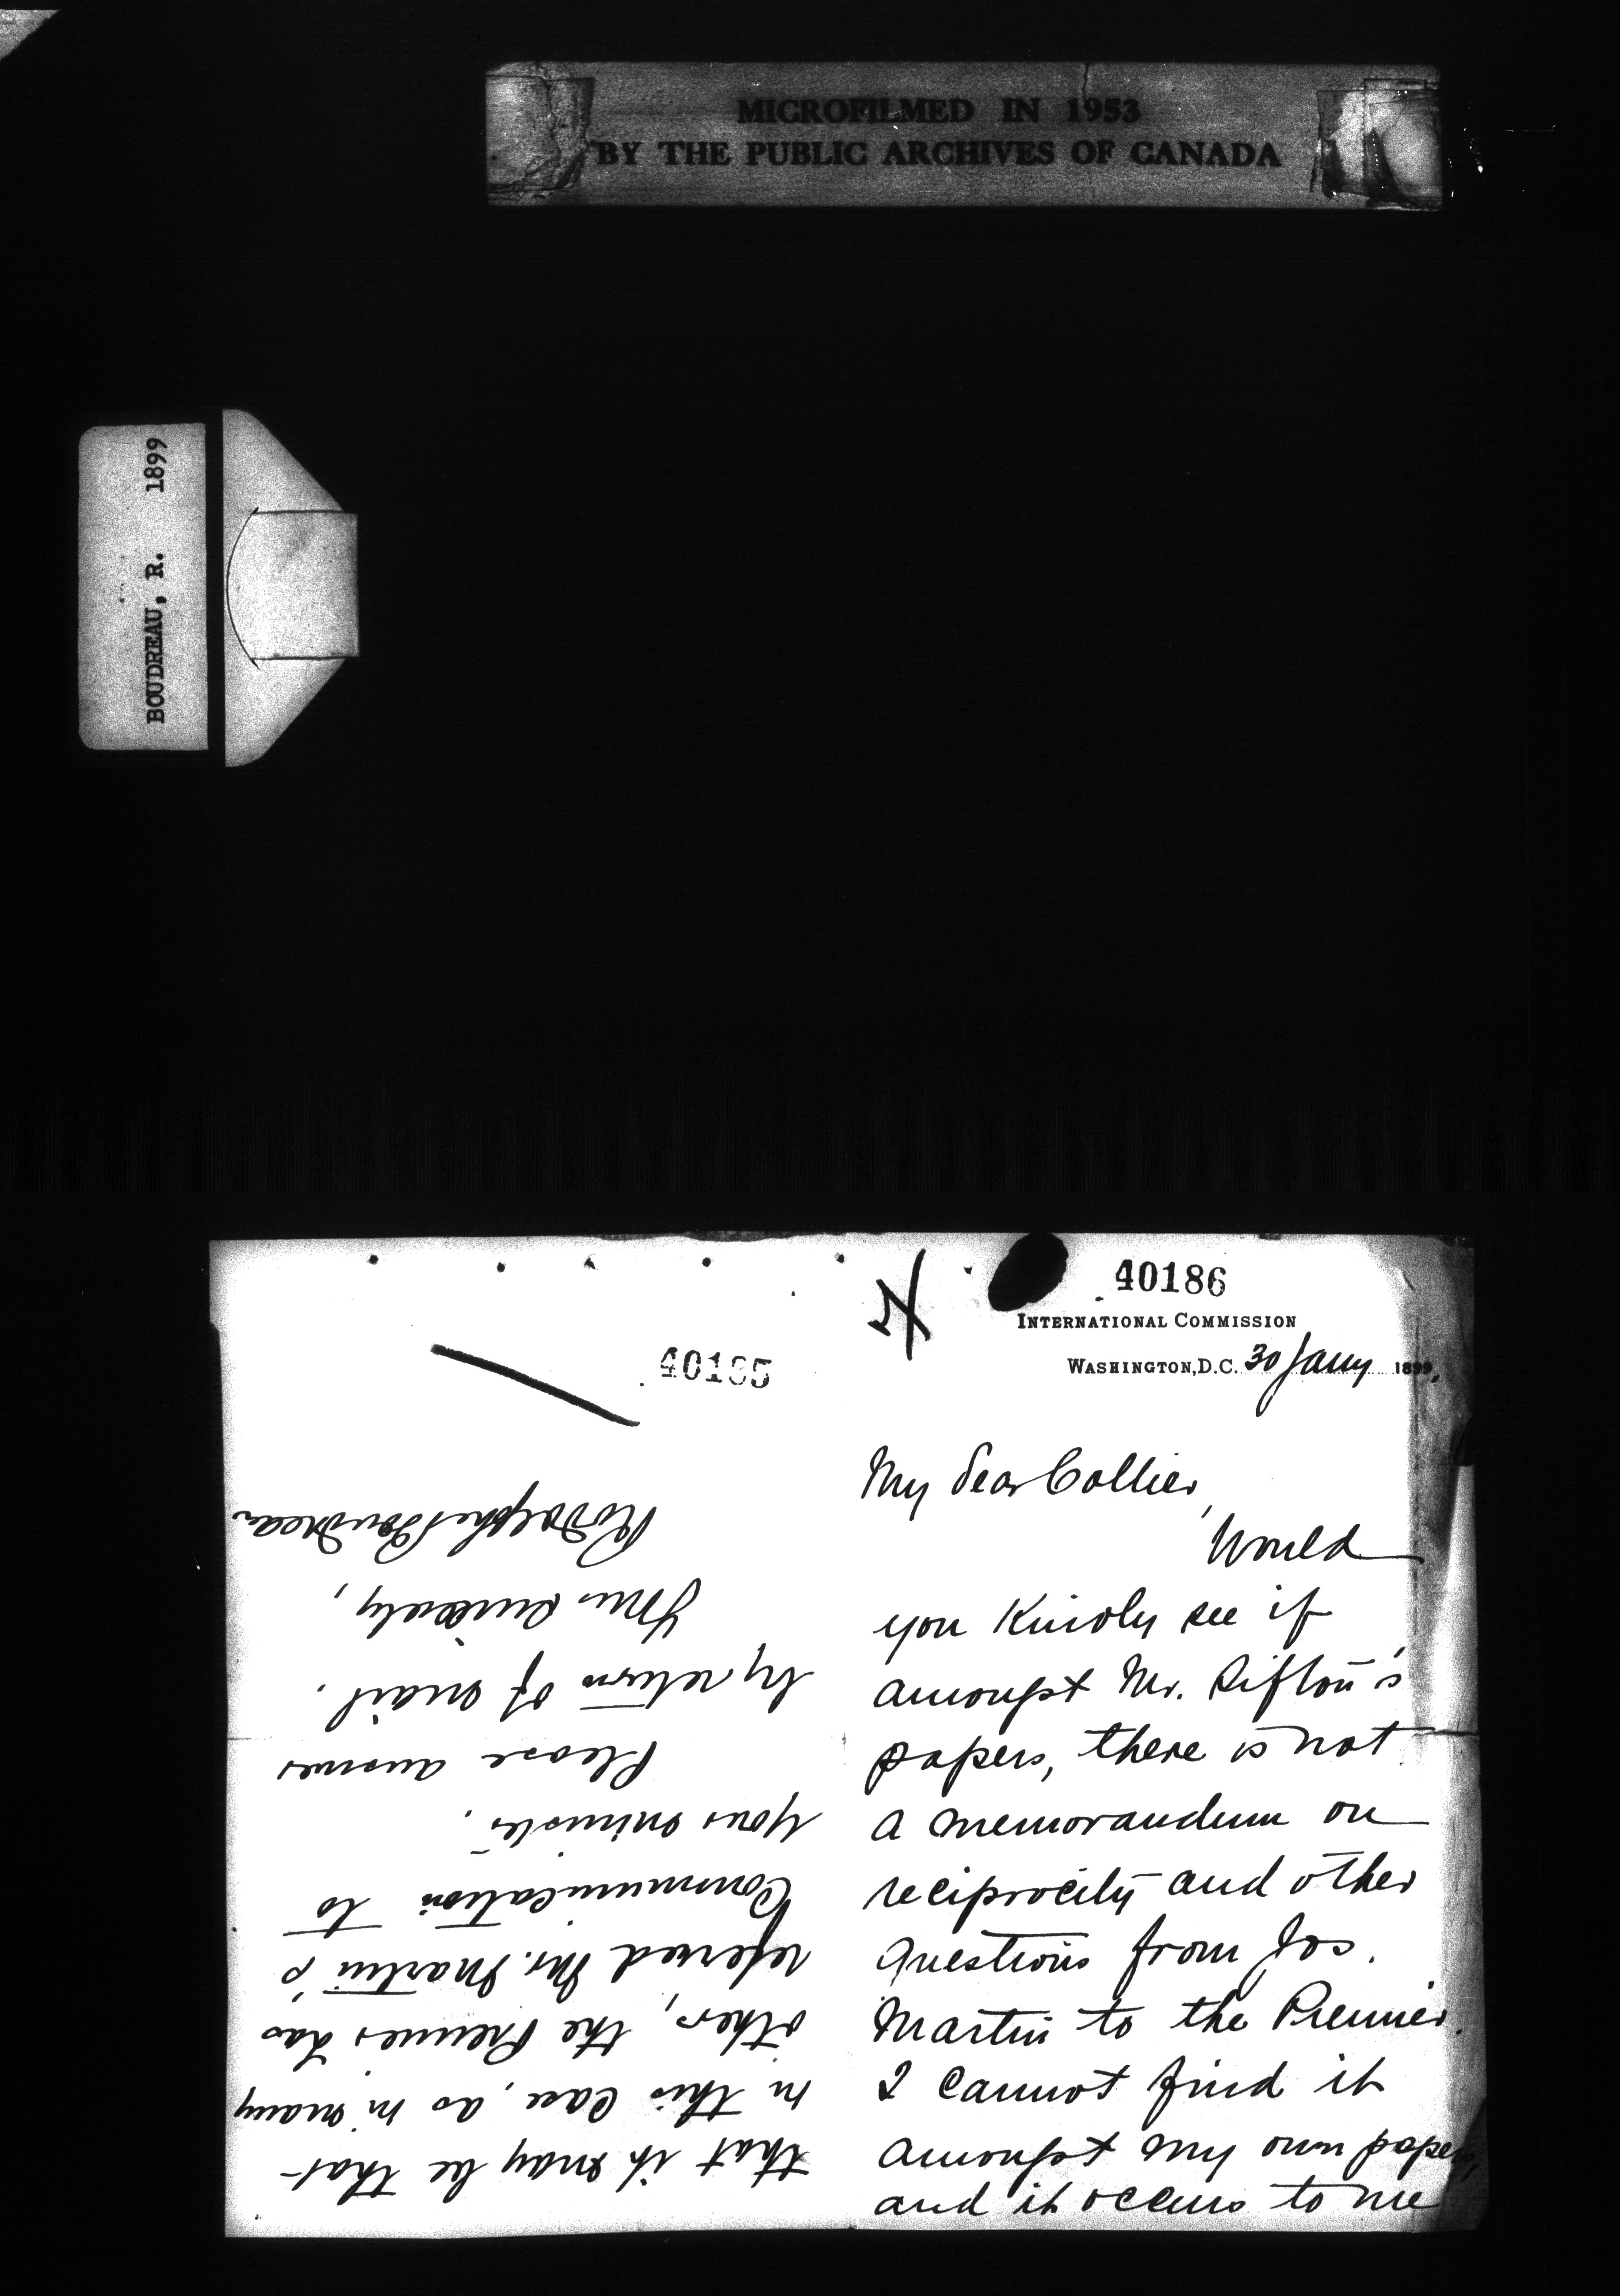 MICROFILMED IN 1953
BY THE PUBLIC ARCHIVES OF CANADA
BOUDREAU, R. 1899
40186
INTERNATIONAL COMMISSION
WASHINGTON, D.C. 30 Jany 1899,
My dear Collier,
Would
you Kindly see if
amongst Mr. Sifton's
papers, there is not
a memorandum on
reciprocity and other
questions from Jos.
Martin to the Premier.
I cannot find it
amongst my own papers
and it occurs to me
40185
that it may be that
in this case, as in many
other, the Premier has
referred Mr. Martin's
Communication to
your minister.
Please answer
by return of mail.
Yours sincerely,
Rodolphe Boudreau